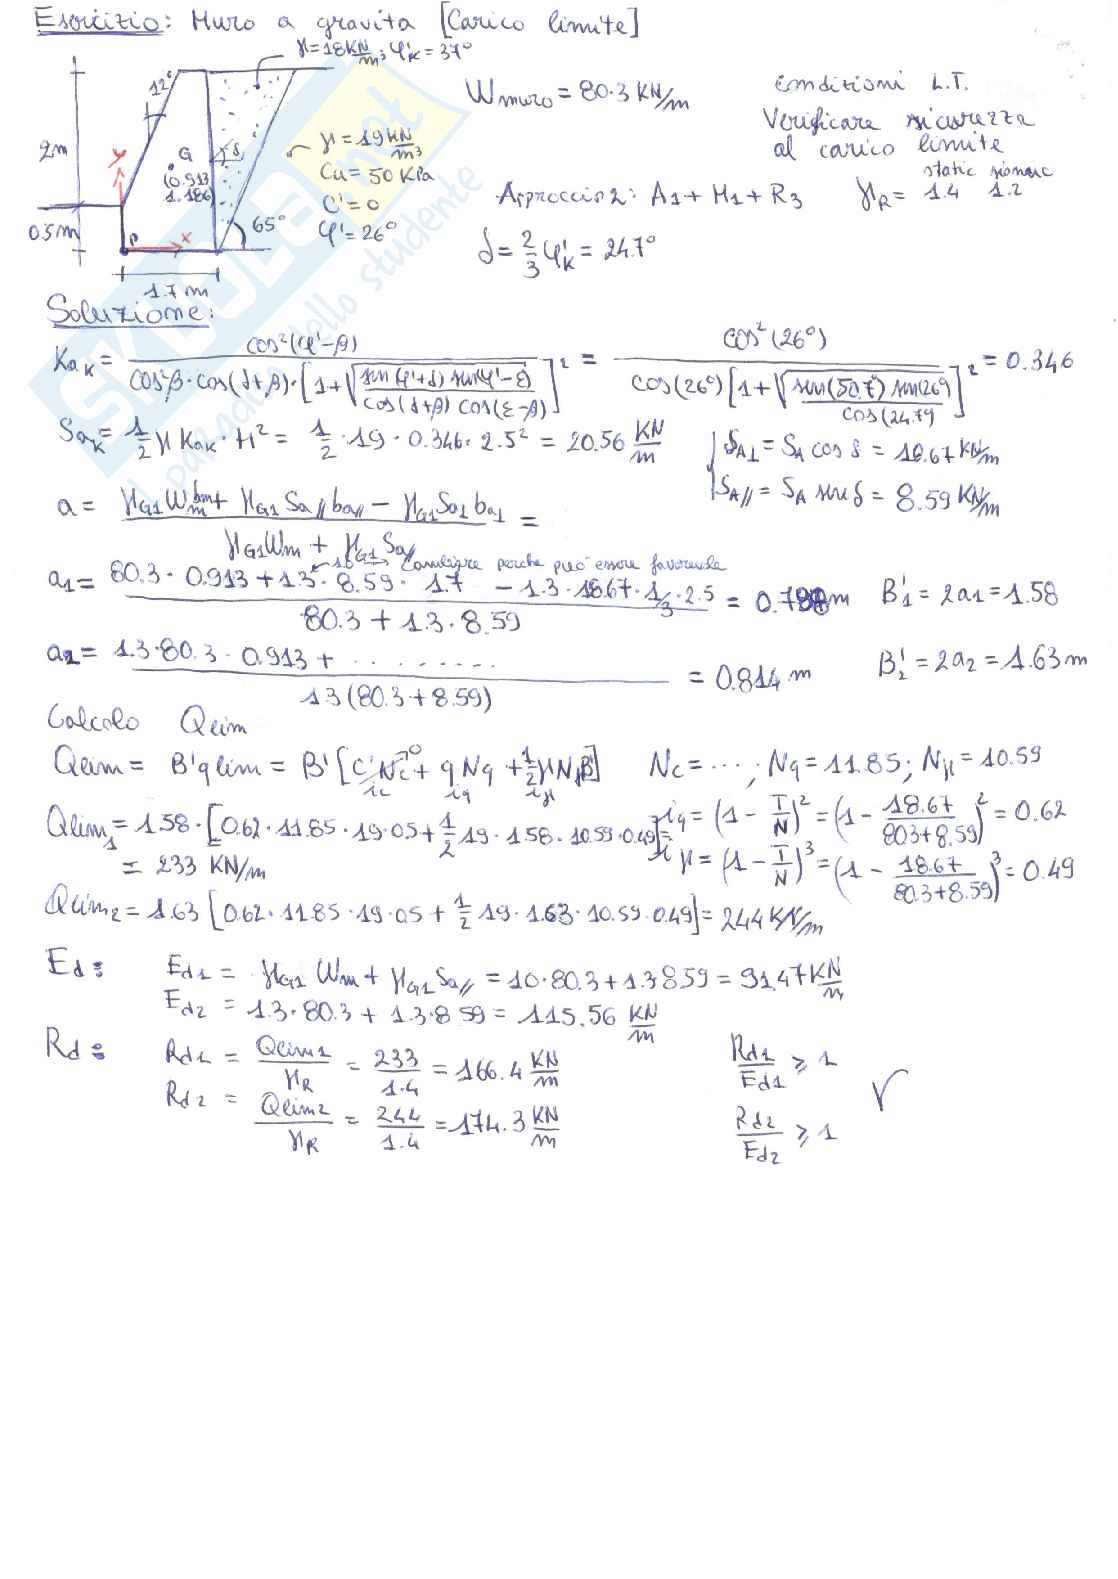 Esercizio: Muro a gravità [Carico limite]
γ=18 KN/m³; φ'k = 37°
12°
Wmuro = 80.3 KN/m
condizioni L.T.
Verificare sicurezza
al carico limite
2m
y
G
(0.913
1.186)
δ
γ = 19 KN/m³
Cu = 50 KPa
C' = 0
φ' = 26°
Approccio 2: A1 + M1 + R3
static sismic
γR = 1.4 1.2
0.5m
P
x
65°
δ = 2/3 φ'k = 24.7°
1.7 m
Soluzione:
KaK = cos²(φ'-β) / cos²β · cos(δ+β) · [1+√(sin(φ'+δ) sin(φ'-ε) / cos(δ+β) cos(ε-β))]² = cos²(26°) / cos(26°) [1+√(sin(50.7°) sin(26°) / cos(24.7°))]² = 0.346
SaK = 1/2 γ KaK · H² = 1/2 · 19 · 0.346 · 2.5² = 20.56 KN/m
SA⊥ = SA cos δ = 18.67 KN/m
SA// = SA sin δ = 8.59 KN/m
a = γG1 Wm bm + γG1 Sa// ba// − γG1 Sa⊥ ba⊥ / γG1 Wm + γG1 Sa// =
perché può essere favorevole
a1 = 80.3 · 0.913 + 1.3 · 8.59 · 1.7 − 1.3 · 18.67 · 1/3 · 2.5 / 80.3 + 1.3 · 8.59 = m B'1 = 2a1 = 1.58
a2 = 1.3 · 80.3 · 0.913 + ......... / 1.3 (80.3 + 8.59) = 0.814 m B'2 = 2a2 = 1.63 m
Calcolo Qlim
Qlim = B' qlim = B' [C' Nc ic + q Nq iq + 1/2 γ Nγ B' iγ] Nc = ... ; Nq = 11.85 ; Nγ = 10.59
0
Qlim1 = 1.58 · [0.62 · 11.85 · 19 · 0.5 + 1/2 19 · 1.58 · 10.59 · 0.49] =
iq = (1 − T/N)² = (1 − 18.67 / 80.3+8.59)² = 0.62
= 233 KN/m
iγ = (1 − T/N)³ = (1 − 18.67 / 80.3+8.59)³ = 0.49
Qlim2 = 1.63 [0.62 · 11.85 · 19 · 0.5 + 1/2 19 · 1.63 · 10.59 · 0.49] = 244 KN/m
Ed: Ed1 = γG1 Wm + γG1 Sa// = 1.0 · 80.3 + 1.3 8.59 = 91.47 KN/m
Ed2 = 1.3 · 80.3 + 1.3 · 8.59 = 115.56 KN/m
Rd: Rd1 = Qlim1 / γR = 233 / 1.4 = 166.4 KN/m Rd1 / Ed1 ⩾ 1
Rd2 = Qlim2 / γR = 244 / 1.4 = 174.3 KN/m Rd2 / Ed2 ⩾ 1 √
SKUOLA.net
il paradiso dello studente